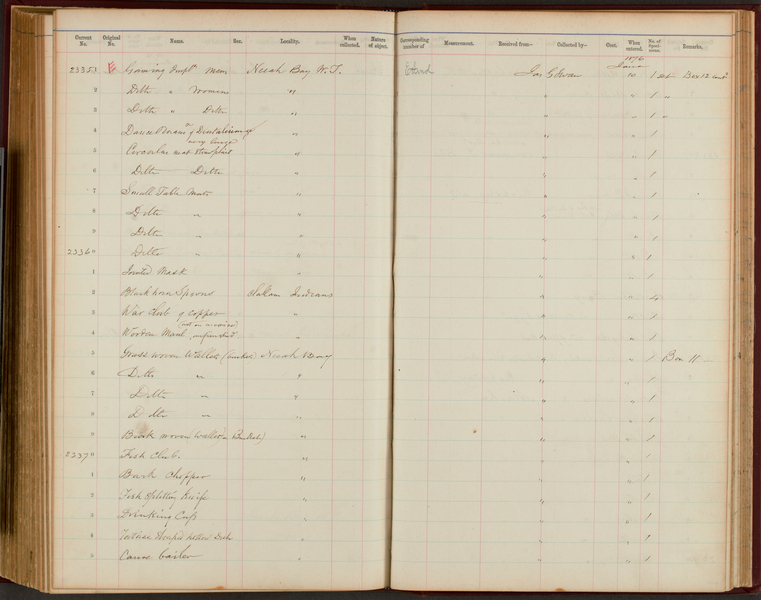 Current No. Original No. Name. Sex. Locality. When collected. Nature of object. Corresponding number of Measurement. Received from— Collected by— Cost. When entered. No. of Specimens. Remarks.
1876
23353 Gaming Impl's men Neeah Bay W.T. Jas. G. Swan 10 1 set Box 12
2 Ditto " Women " " " 1 "
3 Ditto " Ditto " " " 1 "
4 Dance of Dentalium " " " 1
very large
5 Circular mat " " " 1
6 Ditto Ditto " " " 1
7 Small Table Mats " " " 1
8 Ditto " " " " 1
9 Ditto " " " " 1
23360 Ditto " " " " 1
1 Jointed Mask " " " 1
2 Black horn Spoons Clallam Indians " " 4
3 War Club of copper " " " 1
(not on invoice)
4 Wooden Maul, unfinished " " " 1
5 Grass woven Wallet (basket) Neeah Bay " " 1 Box 11
6 Ditto " " " " 1
7 Ditto " " " " 1
8 Ditto " " " " 1
9 Bark woven (Wallet or Basket) " " " 1
23370 Fish Club. " " " 1
1 Bark Chopper " " " 1
2 Fish Splitting Knife " " " 1
3 Drinking Cup " " " 1
4 Tortoise Shaped wooden Dish " " " 1
5 Canoe bailer " " " 1